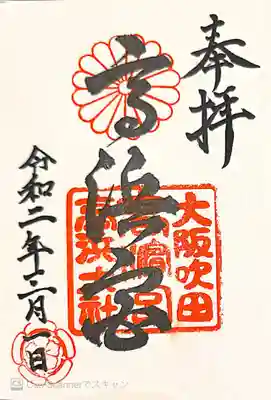 奉拝
高浜宮
大阪吹田
高浜神社
令和二年十二月一日
CamScannerでスキャン